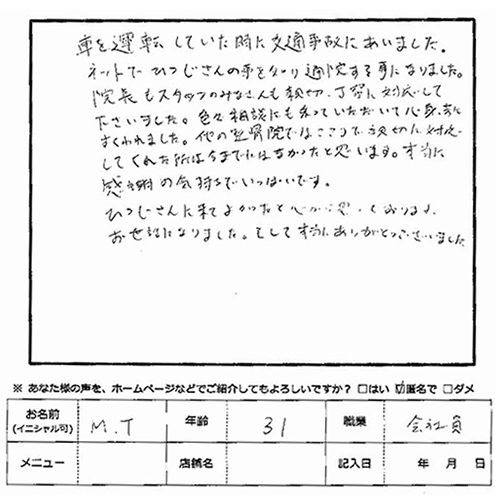 車を運転していた時に交通事故にあいました。
ネットでひつじさんの事を知り通院する事になりました。
院長もスタッフのみなさんも親切、丁寧に対応して
下さいました。色々相談にも乗っていただいて心身共に
すくわれました。他の整骨院ではここまで親切に対応
してくれた所は今までにはなかったと思います。本当に
感謝の気持ちでいっぱいです。
ひつじさんに来てよかったと心から思っております。
お世話になりました。そして本当にありがとうございました
※ あなた様の声を、ホームページなどでご紹介してもよろしいですか？ □はい ☑匿名で □ダメ
お名前 (イニシャル可) M.T 年齢 31 職業 会社員
メニュー 店舗名 記入日 年 月 日